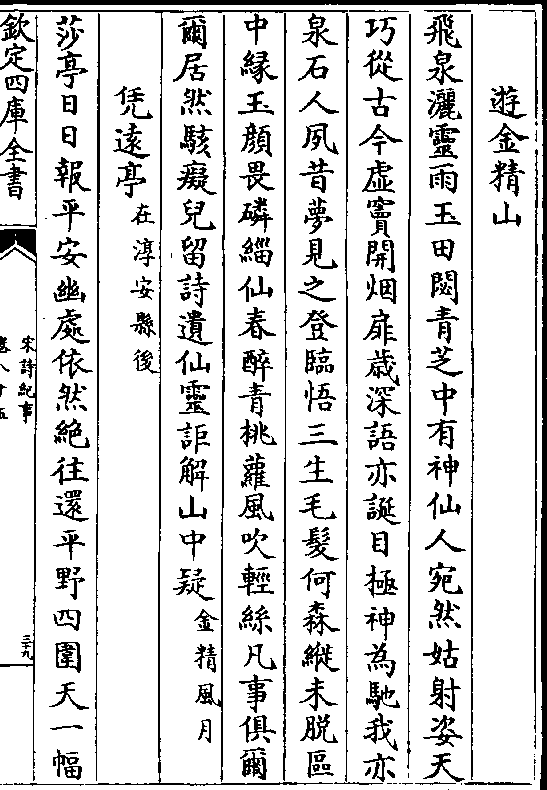 遊金精山
飛泉灑靈雨玉田閟青芝中有神仙人宛然姑射姿天
巧從古今虛竇開烟扉歲深語亦誕目極神為馳我亦
泉石人夙昔夢見之登臨悟三生毛髮何森縱未脫區
中縁玉顏畏磷緇仙春醉青桃蘿風吹輕絲凡事俱爾
爾居然駭癡兒留詩遺仙靈詎解山中疑金精風月
凭逺亭在淳安縣後
莎亭日日報平安幽處依然絶往還平野四圍天一幅
欽定四庫全書
宋詩紀事
卷八十五
三十九